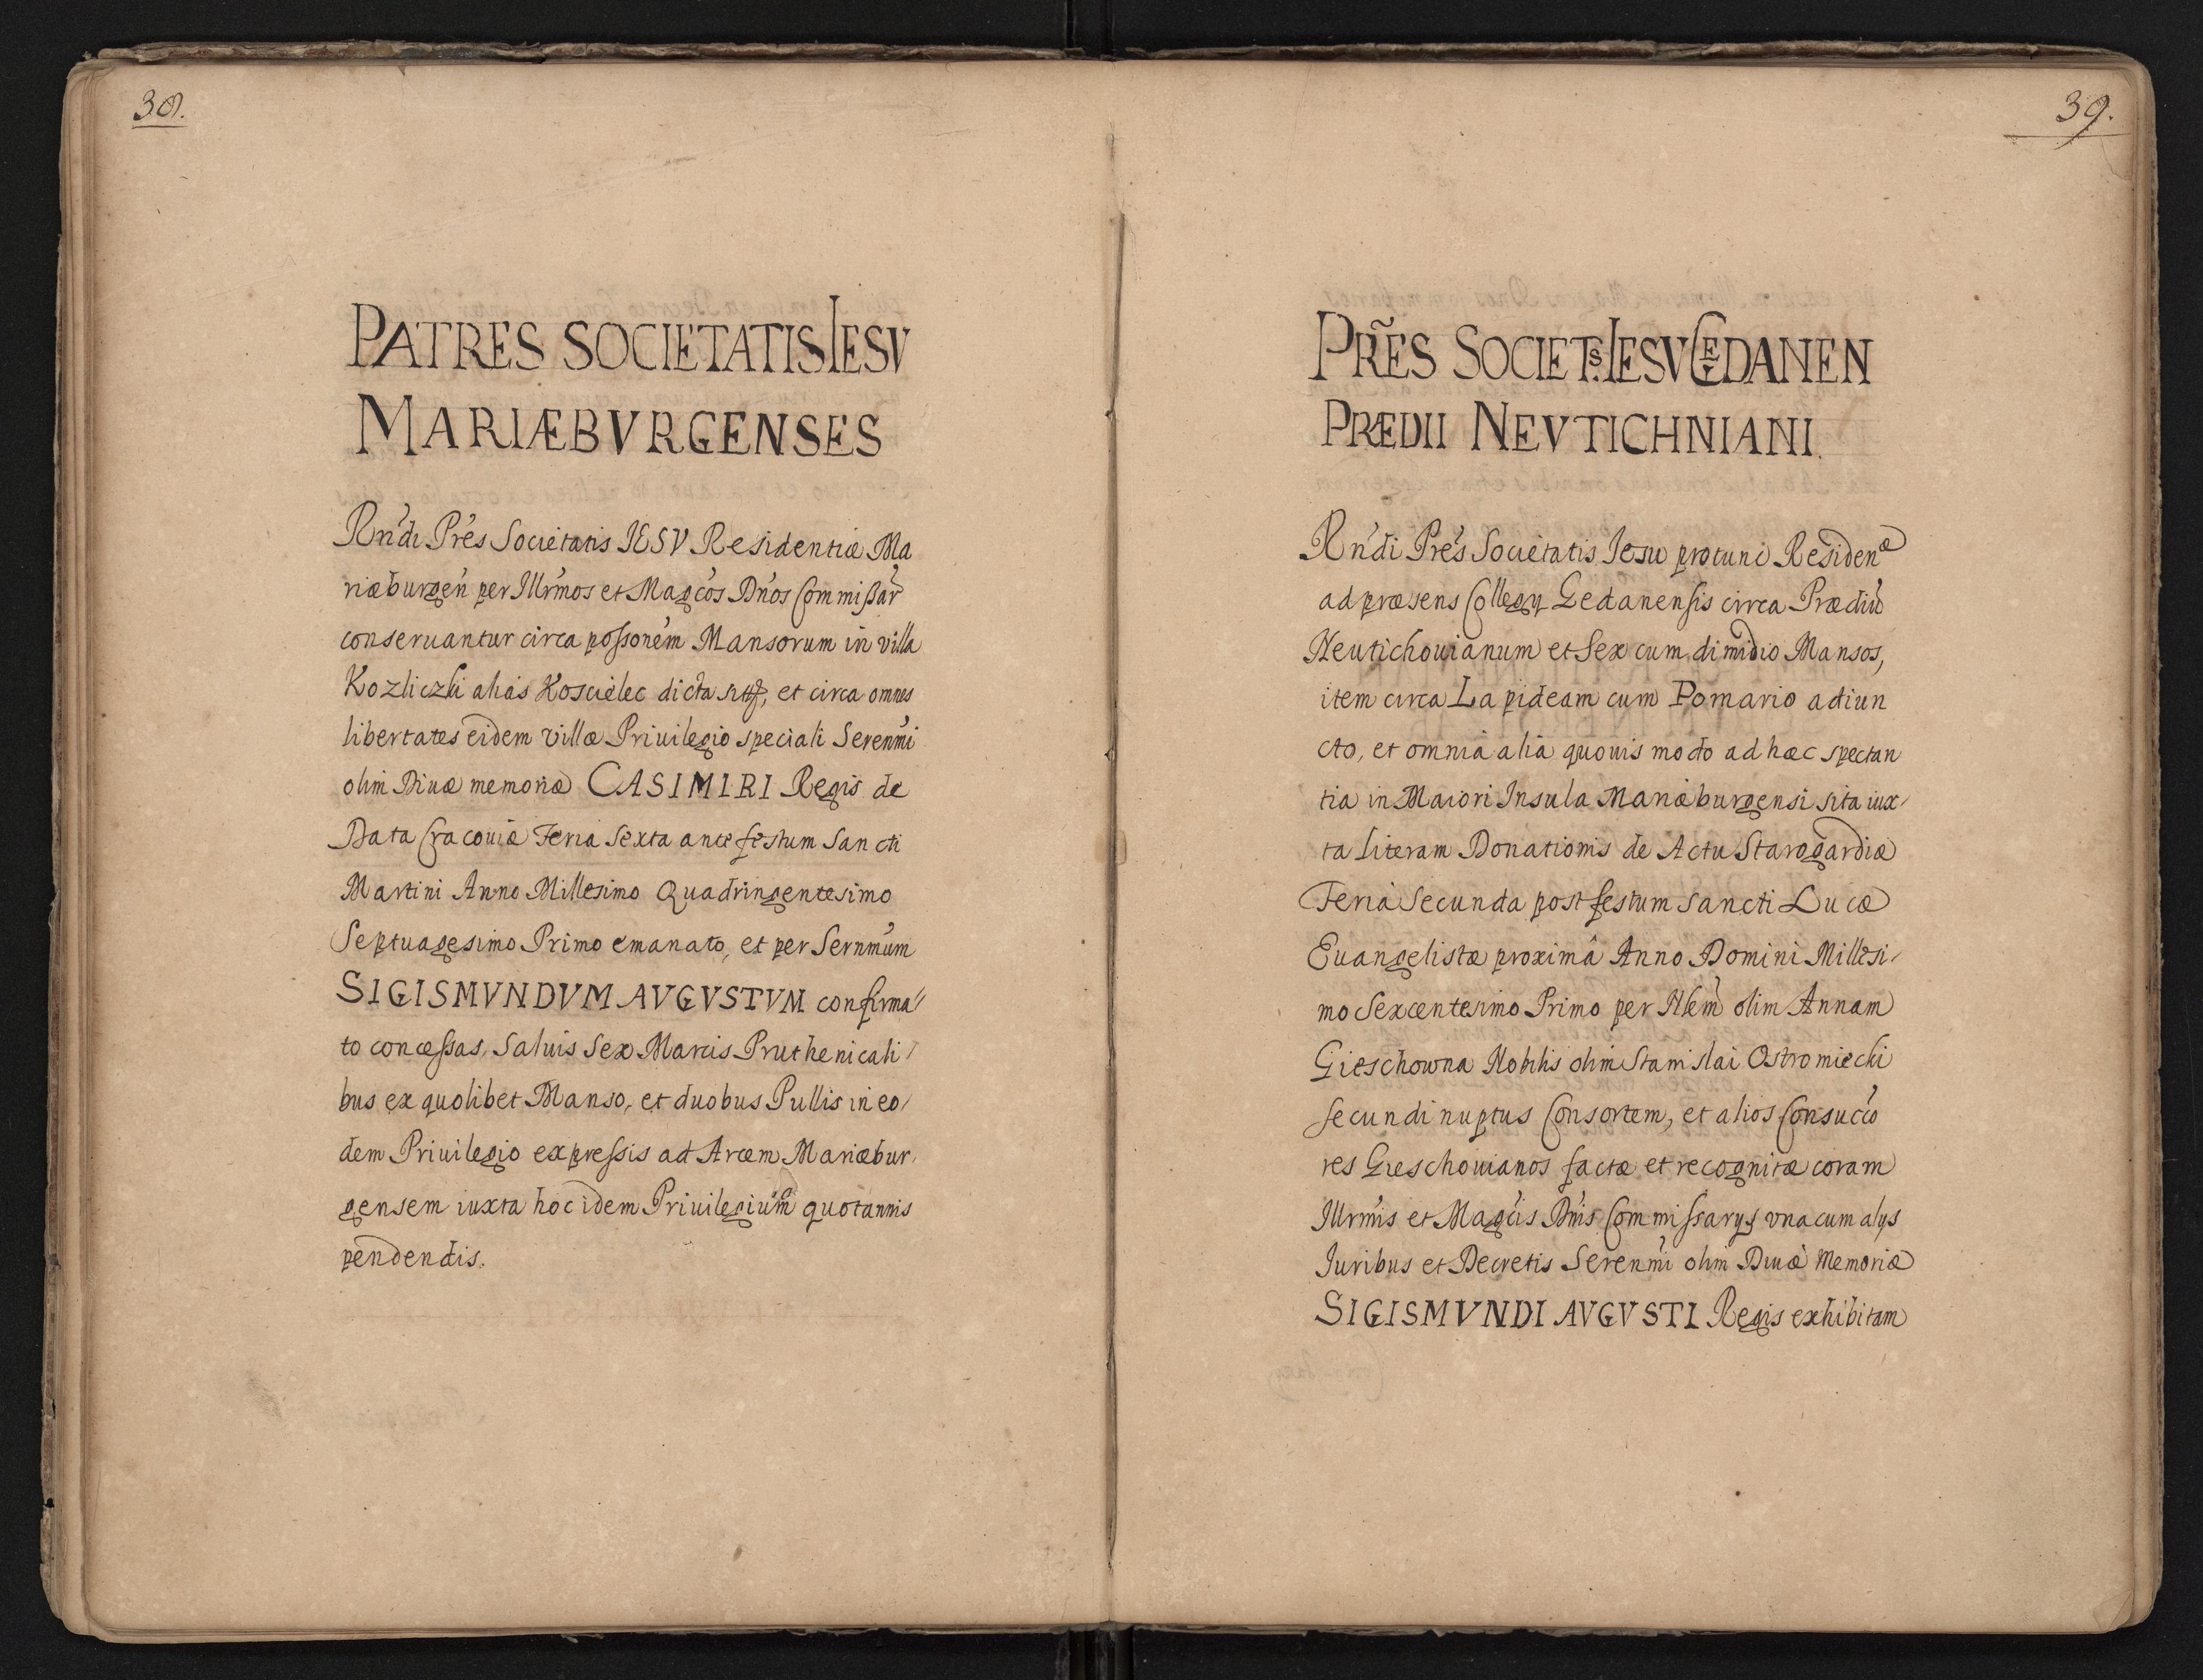 38.
PATRES SOCIETATIS IESV
MARIÆBVRGENSES
Rńdi Prés Societatis IESV Residentiæ Ma
riæburgeń per Illrḿos et Magćos Dńos Commißar
conseruantur circa poſsoném Mansorum in villa
Kozliczki alias Kościelec dicta et circa omnes
libertates eidem villæ Priuilegio speciali Serenḿi
olim Diuæ memoriæ CASIMIRI Regis de
Data Cracouiæ Feria Sexta ante festum Sancti
Martini Anno Millesimo Quadringentesimo
Septuagesimo Primo emanato, et per Sernḿum
SIGISMVNDVM AVGVSTVM confirma//
to conceſsas, Saluis Sex Marcis Pruthenicali/
bus ex quolibet Manso, et duobus Pullis in eo/
dem Priuilegio expreſsis ad Arcem Mariæbur,
gensem iuxta hoc idem Priuilegium quotannis
pendendis.
39.
PR̃ES SOCIETS. IESV GEDANEN
PRÆDII NEVTICHNIANI.
Rńdi Prés Societatis Iesu protunc Residenæ
ad præsens Collegy Gedanensis circa Prædiú
Neutichouianum et Sex cum dimidio Mansos,
item circa Lapideam cum Pomario adiun
cto, et omnia alia quouis modo ad hæc spectan
tia in Maiori Insula Mariæburgensi sita iux/
ta literam Donationis de Actu Starogardiæ
Feria Secunda post festum Sancti Lucæ
Euangelistæ proximâ Anno Domini Millesi/
mo Sexcentesimo Primo per Nlem̀ olim Annam
Gieschowna Nobilis olim Stanislai Ostromiecki
Secundi nuptus Consortem, et alios Consuccó
res Gieschouianos factæ et recognitæ coram
Illrḿis et Magćis Dńis Commiſsarys vna cum alys
Iuribus et Decretis Serenḿi olim Diuæ Memoriæ
SIGISMVNDI AVGVSTI Regis exhibitam